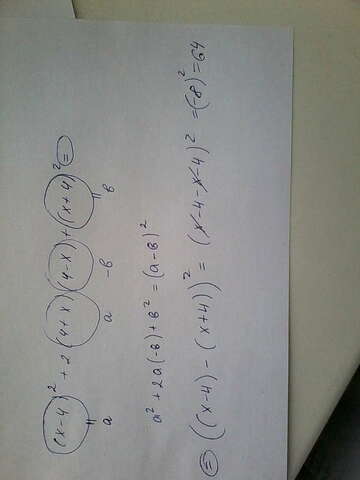 (x-4)² + 2(4+x)(4-x)+(x+4)² =
a a -в в
a² + 2a(-в) + в² = (a-в)²
= ((x-4) - (x+4))² = (x-4-x-4)² = (-8)² = 64